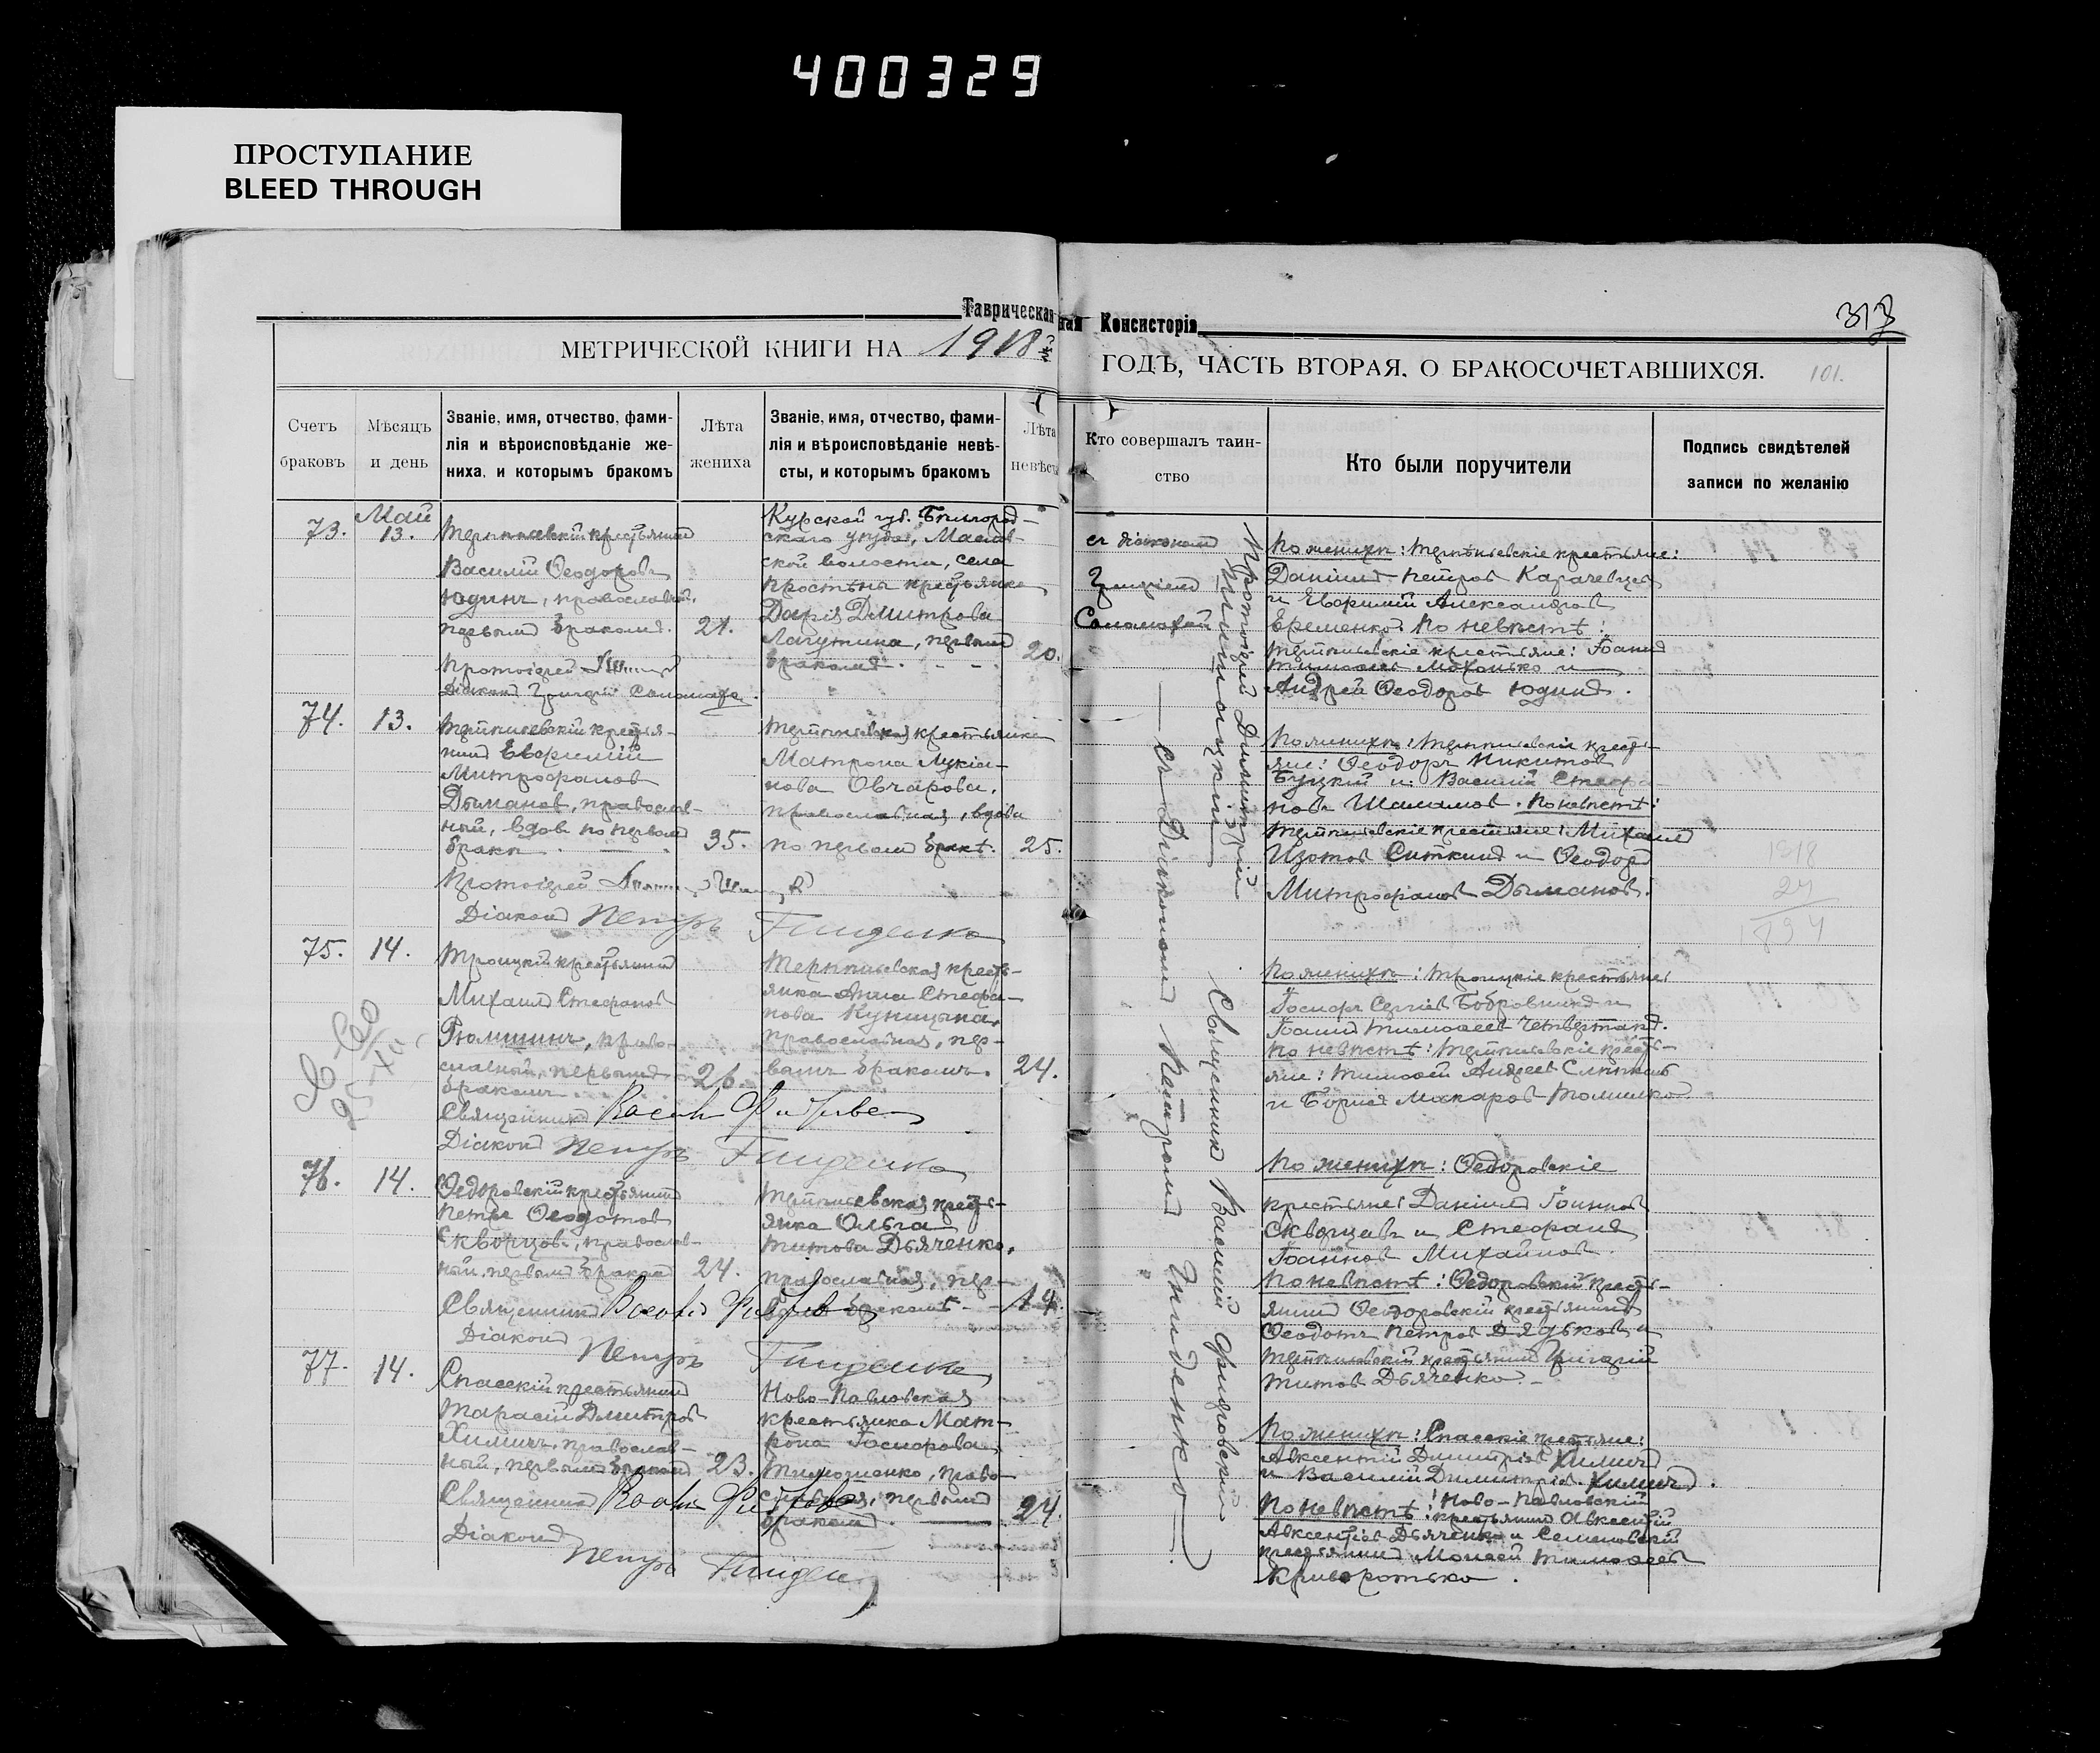 400329
ПРОСТУПАНИЕ
BLEED THROUGH
Таврическая Консисторія
313
МЕТРИЧЕСКОЙ КНИГИ НА 1918 ГОДЪ, ЧАСТЬ ВТОРАЯ, О БРАКОСОЧЕТАВШИХСЯ.
101.
Счетъ
браковъ
Мѣсяцъ
и день
Званіе, имя, отчество, фами-
лія и вѣроисповѣданіе же-
ниха, и которымъ бракомъ
Лѣта
жениха
Званіе, имя, отчество, фами-
лія и вѣроисповѣданіе невѣ-
сты, и которымъ бракомъ
Лѣта
невѣсты
Кто совершалъ таин-
ство
Кто были поручители
Подпись свидѣтелей
записи по желанію
73.
Май
13.
крестьянинъ
Василій Ѳеодоровъ
Юдинъ, православный,
первымъ бракомъ.
21.
Протоіерей
Діаконъ Григорій Саломаха
Курской губ. Бѣлгород-
скаго уѣзда,
ской волости, села
крестьянка
Дарія Димитрова
Лагутина, первымъ
бракомъ.
20.
съ діакономъ
Григоріемъ
Саломахой
Протоіерей Димитрій
По женихѣ: крестьяне:
Даніилъ Петровъ Карачевцевъ
и Евфимій Александровъ
Еременко. По невѣстѣ:
крестьяне: Іоаннъ
Тимоѳеевъ Махонько и
Андрей Ѳеодоровъ Юдинъ.
74.
13.
крестья-
нинъ Евфимій
Митрофановъ
Дымановъ, православ-
ный, вдовъ по первомъ
бракѣ
35.
Протоіерей
Діаконъ Петръ Гниденко
крестьянка
Матрона Лукіа-
нова Овчарова,
православная, вдова
по первомъ бракѣ.
25.
съ Діакономъ Петромъ Гниденко
По женихѣ: кресть-
яне: Ѳеодоръ Никитовъ
Буцкій и Василій Стефа-
новъ Шаламовъ. По невѣстѣ:
крестьяне: Михаилъ
Изотовъ Ситкинъ и Ѳеодоръ
Митрофановъ Дымановъ.
1918
24
1894
75.
14.
Троицкій крестьянинъ
Михаилъ Стефановъ
Рюмшинъ, право-
славный, первымъ
бракомъ
26.
Священникъ
Діаконъ Петръ Гниденко
кресть-
янка Анна Стефа-
нова Куницына,
православная, пер-
вымъ бракомъ.
24.
Священникъ Василій
По женихѣ: Троицкіе крестьяне:
Іосифъ Сергіевъ Бобровникъ и
Іоаннъ Тимоѳеевъ
По невѣстѣ: кресть-
яне: Тимоѳей Андреевъ
и Борисъ Макаровъ Томилко
76.
14.
Ѳедоровскій крестьянинъ
Петръ Ѳеодотовъ
Скворцовъ, православ-
ный, первымъ бракомъ
24.
Священникъ
Діаконъ
Петръ Гниденко
кресть-
янка Ольга
Титова Дьяченко,
православная, пер-
вымъ бракомъ
19.
По женихѣ: Ѳедоровскіе
крестьяне: Даніилъ Іоанновъ
Скворцовъ и Стефанъ
Іоанновъ Михайловъ.
По невѣстѣ: Ѳедоровскій кресть-
янинъ Ѳедоровскій крестьянинъ
Ѳеодотъ Петровъ Дядьковъ и
крестьянинъ Григорій
Титовъ Дьяченко.
77.
14.
Спасскій крестьянинъ
Тарасій Димитровъ
Химичъ, православ-
ный, первымъ бракомъ
23.
Священникъ
Діаконъ
Петръ Гниденко
Ново-Павловская
крестьянка Мат-
рона Іосифова
Тимошенко, право-
славная, первымъ
бракомъ.
24.
По женихѣ: Спасскіе крестьяне:
Авксентій Димитріевъ Химичъ
и Василій Димитріевъ Химичъ.
По невѣстѣ: Ново-Павловскій
крестьянинъ Авксентій
Авксентіевъ Дьяченко и Семеновскій
крестьянинъ Моисей Тимоѳеевъ
Криворотько.